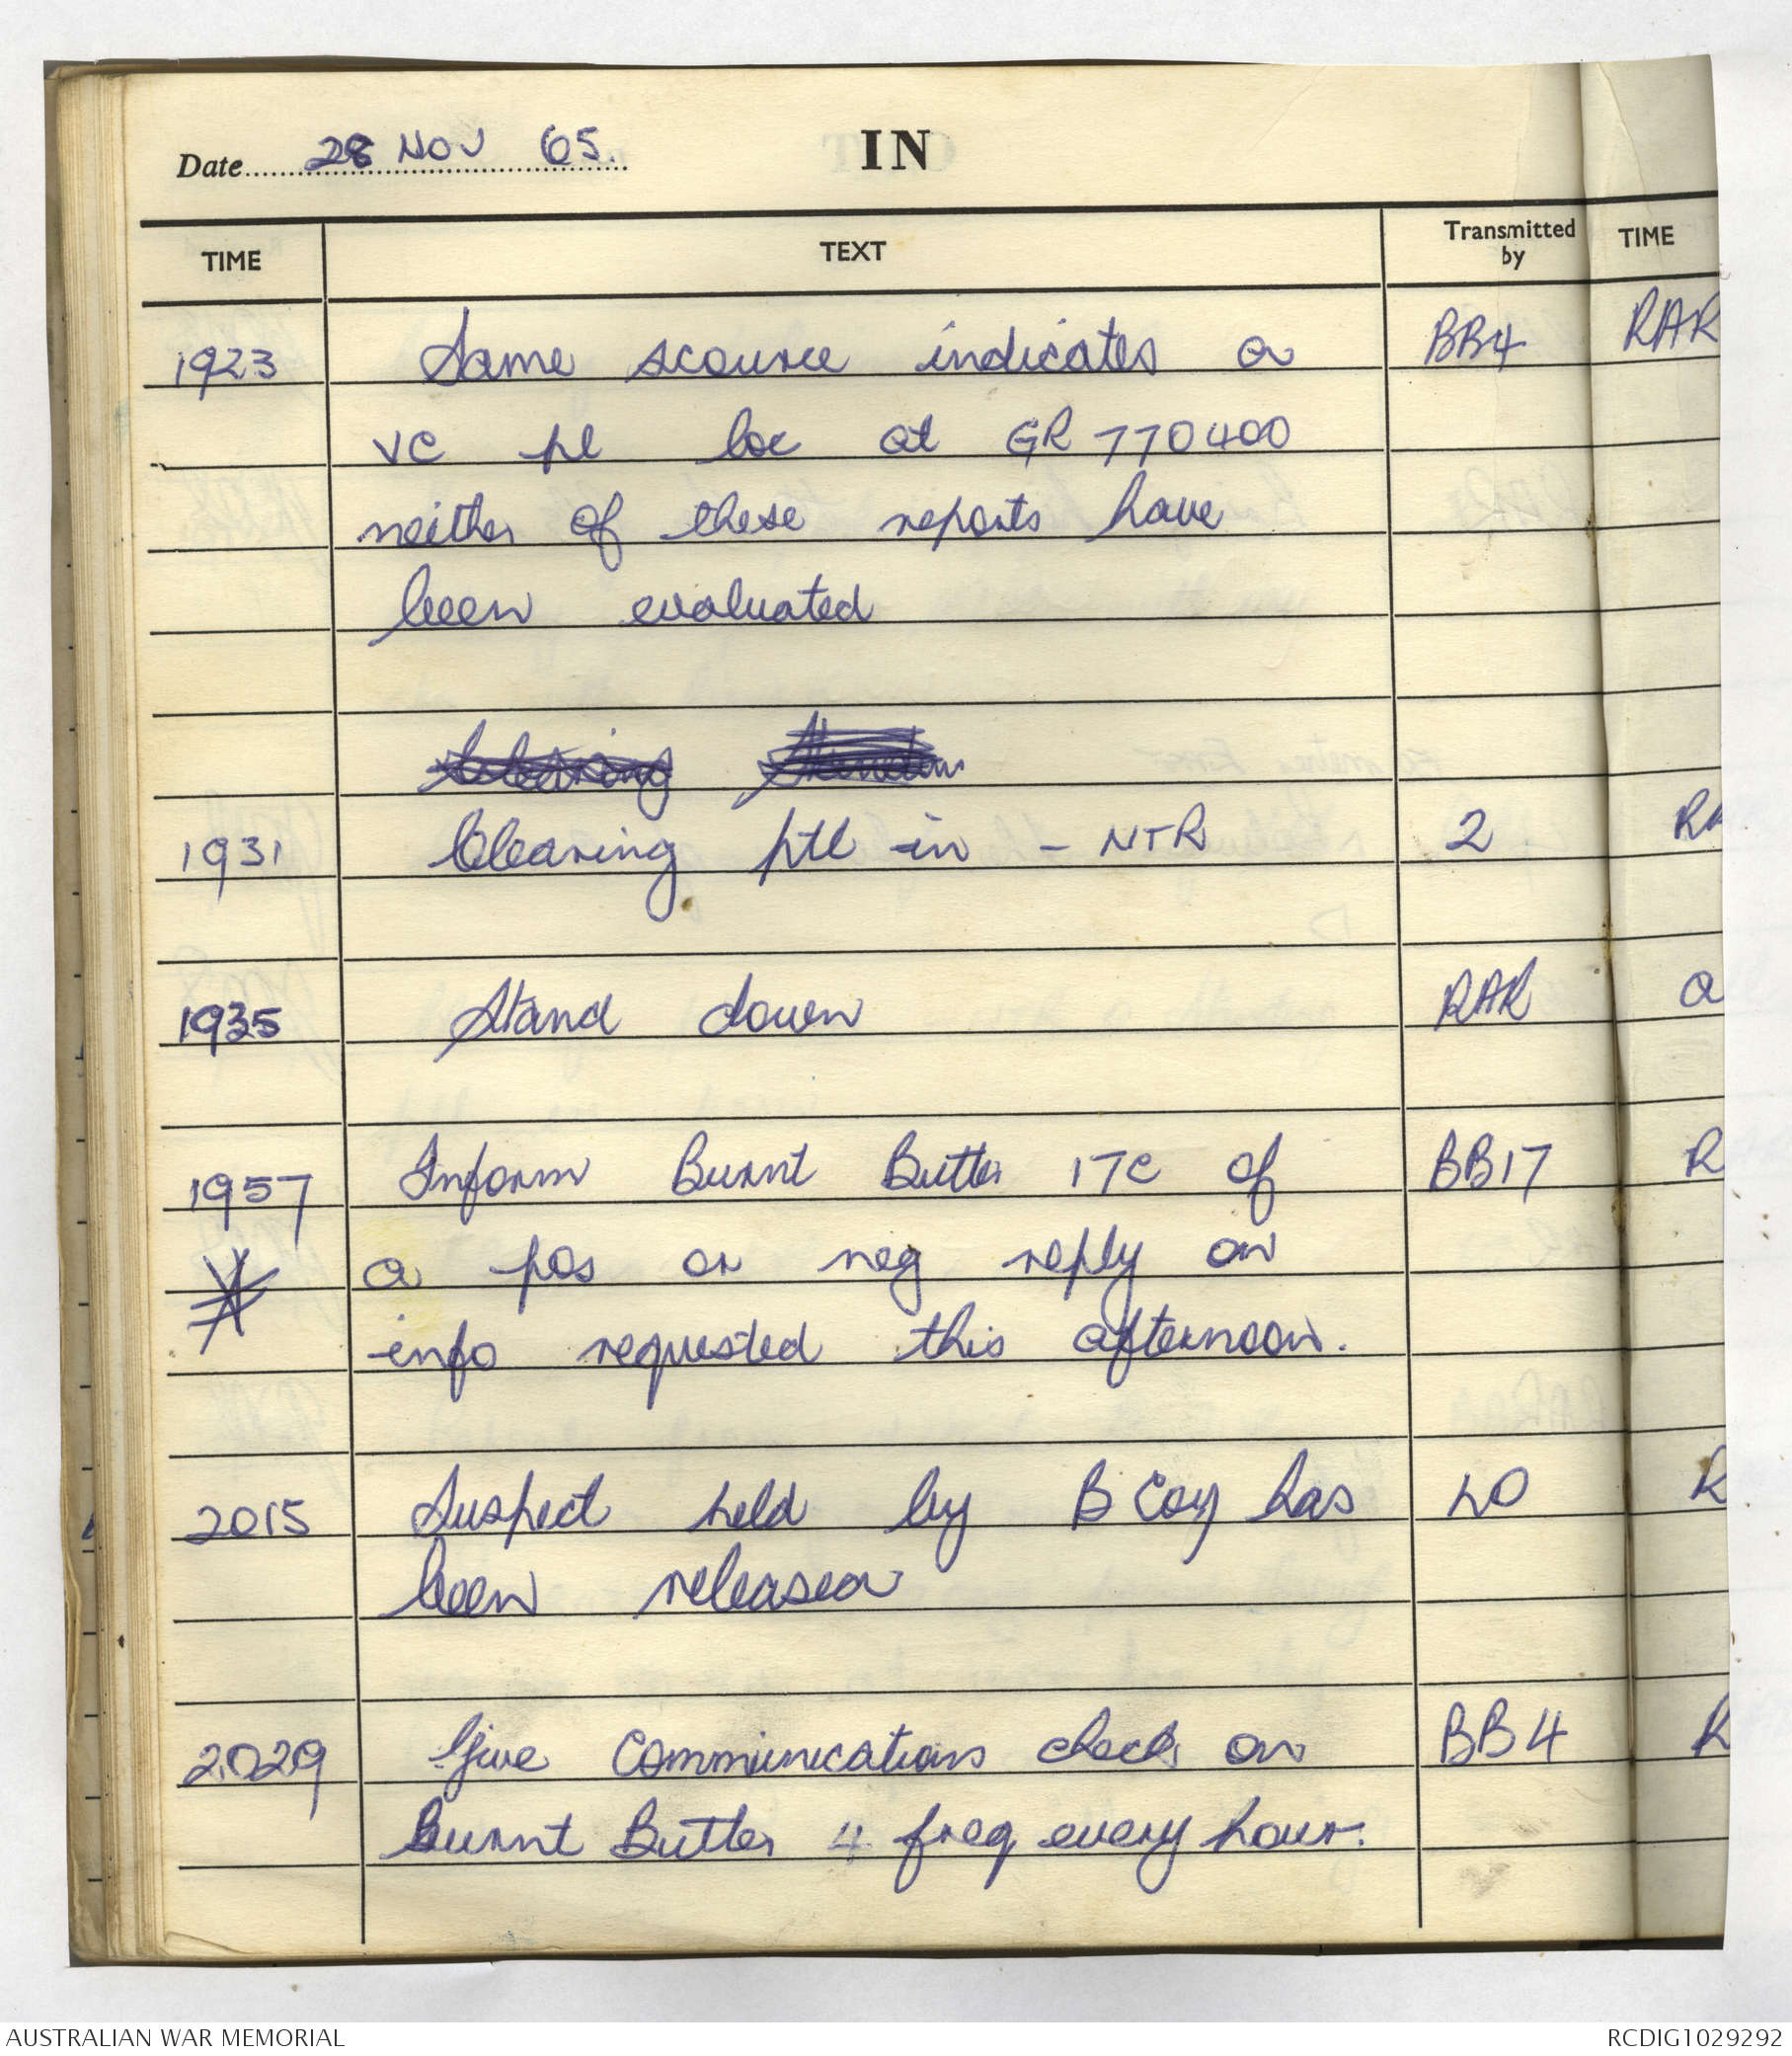 Date 28 NOV 65. IN
TIME TEXT Transmitted by TIME
1923 Same scource indicates a BB4 RAR
VC pl loc at GR 770400
neither of these reports have
been evaluated
Clearing
1931 Clearing ptl in - NTR 2 RA
1935 Stand down RAR
1957 Inform Burnt Butter 17C of BB17 R
a pos or neg reply on
info requested this afternoon.
2015 Suspect held by B Coy has LO R
been released
2029 Give communications check on BB4 R
Burnt Butter 4 freq every hour.
AUSTRALIAN WAR MEMORIAL RCDIG1029292